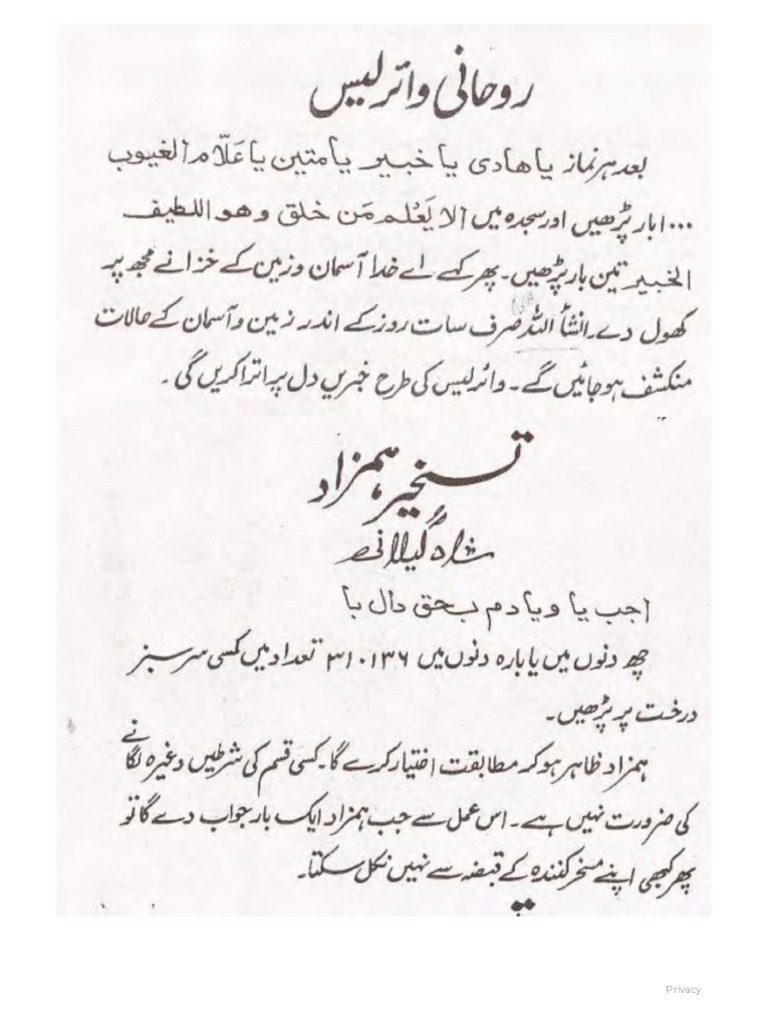 روحانی وائرلیس
بعد ہر نماز یا ھادی یا خبیر یا متین یا عَلّام الغیوب
۱۰۰۰ بار پڑھیں اور سجدہ میں الا یَعْلم مَن خلق و ھو اللطیف
الخبیر تین بار پڑھیں۔ پھر کہے اے خدا آسمان و زمین کے خزانے مجھ پر
کھول دے۔ انشأ اللہ صرف سات روز کے اندر زمین و آسمان کے حالات
منکشف ہو جائیں گے۔ وائرلیس کی طرح خبریں دل پر اترا کریں گی۔
تسخیر ہمزاد
شاہ گیلانی
اجب یا و یا دم بحق دال با
چھ دنوں میں یا بارہ دنوں میں ۳۱۰۱۳۶ تعداد میں کسی سرسبز
درخت پر پڑھیں۔
ہمزاد ظاہر ہو کر مطابقت اختیار کرے گا۔ کسی قسم کی شرطیں وغیرہ لگانے
کی ضرورت نہیں ہے۔ اس عمل سے جب ہمزاد ایک بار جواب دے گا تو
پھر کبھی اپنے مسخر کنندہ کے قبضہ سے نہیں نکل سکتا۔
Privacy